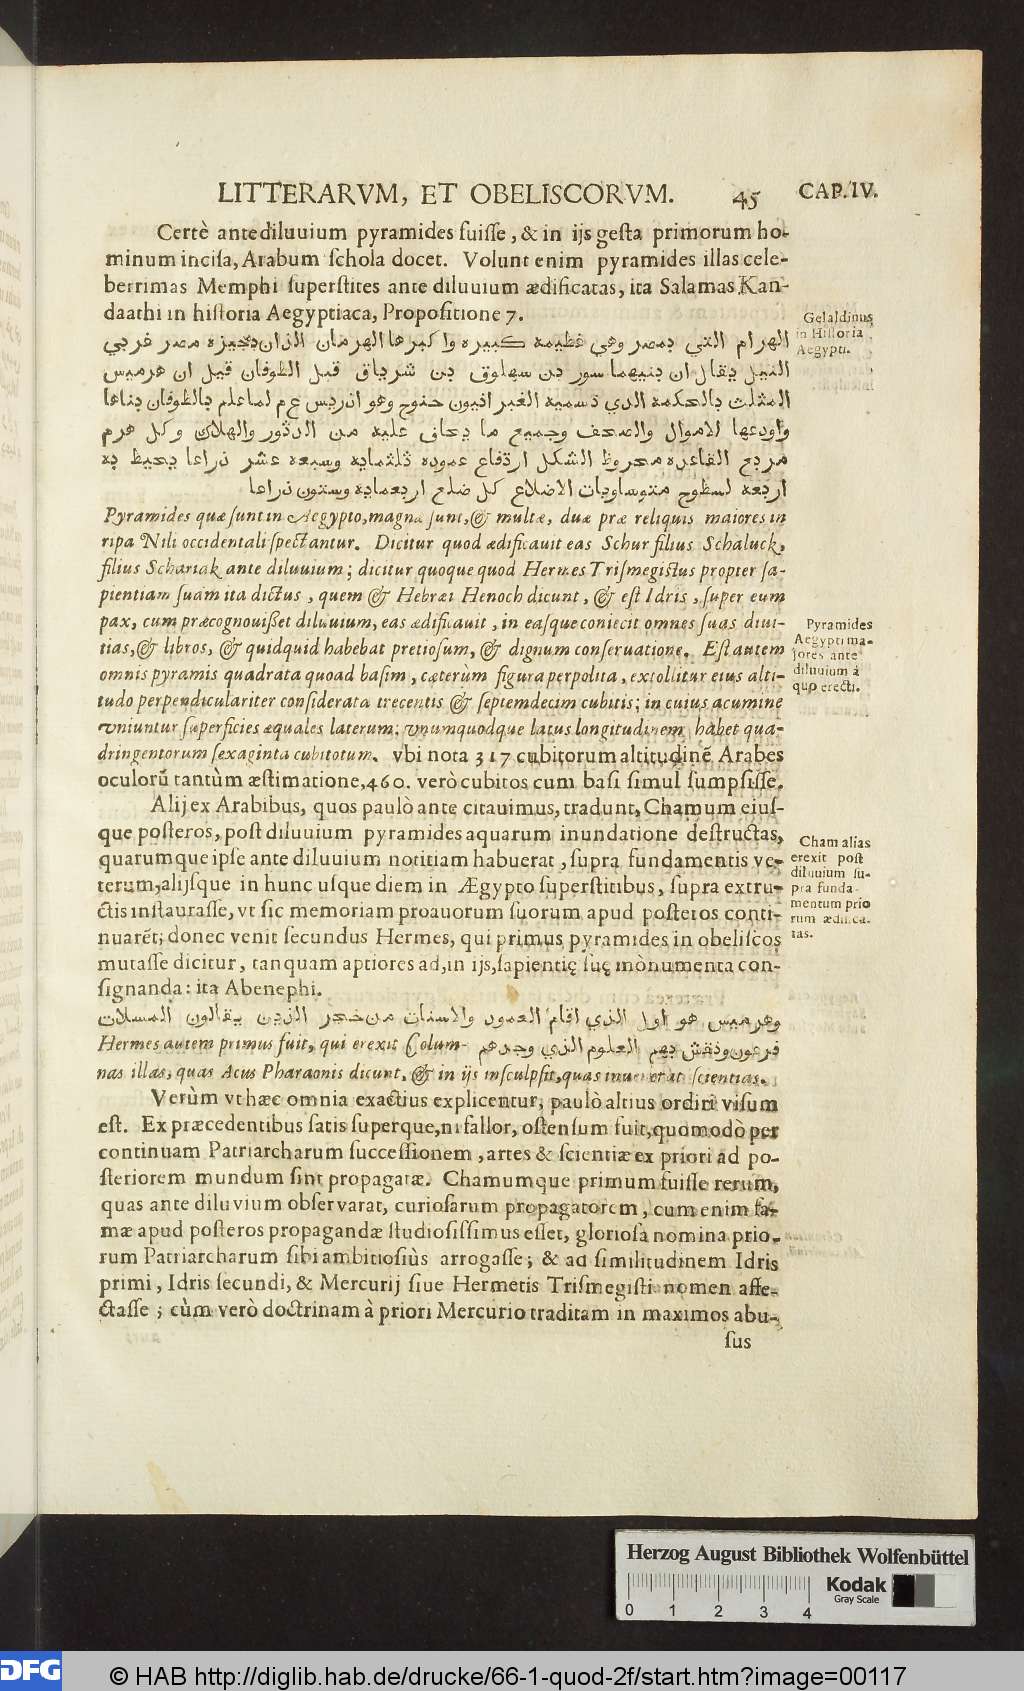 LITTERARVM, ET OBELISCORVM. 45 CAP. IV.
Certè antediluuium pyramides fuisse, & in ijs gesta primorum ho-
minum incisa, Arabum schola docet. Volunt enim pyramides illas cele-
berrimas Memphi superstites ante diluuium ædificatas, ita Salamas Kan-
daathi in historia Aegyptiaca, Propositione 7.
Gelaldinus
in Historia
Aegypti.
الهرام التي بمصر وهي عظيمه كبيره واكبرها الهرمان الذان بجيزه مصر غربي
النيل يقال ان بنيهما سور بن سهلوق بن شرياق قبل الطوفان قيل ان هرميس
المثلث بالحكمه الدي تسميه العبرانيون حنوح وهو ادريس ع م لما علم بالطوفان بناها
واودعها الاموال والصحف وجميع ما يخاف عليه من الدثور والهلاك وكل هرم
مربع القاعده مخروط الشكل ارتفاع عموده ثلثمايه وسبعه عشر ذراعا يحيط به
اربعه لسطوح متوساويات الاضلاع كل ضلع اربعمايه وستون ذراعا
Pyramides quæ sunt in Aegypto, magna sunt, & multæ, duæ præ reliquis maiores in
ripa Nili occidentali spectantur. Dicitur quod ædificauit eas Schur filius Schaluck,
filius Schariak ante diluuium; dicitur quoque quod Hermes Trismegistus propter sa-
pientiam suam ita dictus, quem & Hebræi Henoch dicunt, & est Idris, super eum
pax, cum præcognouißet diluuium, eas ædificauit, in easque coniecit omnes suas diui-
tias, & libros, & quidquid habebat pretiosum, & dignum conseruatione. Est autem
omnis pyramis quadrata quoad basim, cæterùm figura perpolita, extollitur eius alti-
tudo perpendiculariter considerata trecentis & septemdecim cubitis; in cuius acumine
vniuntur superficies æquales laterum. vnumquodque latus longitudinem habet qua-
dringentorum sexaginta cubitotum. vbi nota 317 cubitorum altitudinẽ Arabes
oculorũ tantùm æstimatione, 460. verò cubitos cum basi simul sumpsisse.
Pyramides
Aegypti ma-
jores ante
diluuium à
quo erecti.
Alij ex Arabibus, quos paulò ante citauimus, tradunt, Chamum eius-
que posteros, post diluuium pyramides aquarum inundatione destructas,
quarumque ipse ante diluuium notitiam habuerat, supra fundamentis ve-
terum, alijsque in hunc usque diem in Ægypto superstitibus, supra extru-
ctis instaurasse, vt sic memoriam proauorum suorum apud posteros conti-
nuarẽt; donec venit secundus Hermes, qui primus pyramides in obeliscos
mutasse dicitur, tanquam aptiores ad, in ijs, sapientię suę mònumenta con-
signanda: ita Abenephi.
Cham alias
erexit post
diluuium su-
pra funda-
mentum prio
rum ædifica-
tas.
وهرميس هو اول الذي اقام العمود والاسنات من حجر الذين يقالون المسلات
فرعون ونقش بهم العلوم الذي وجدهم Hermes autem primus fuit, qui erexit Colum-
nas illas, quas Acus Pharaonis dicunt, & in ijs insculpsit, quas inuenerat scientias.
Verùm vt hæc omnia exactius explicentur, paulò altius ordiri visum
est. Ex præcedentibus satis superque, ni fallor, ostensum fuit, quomodò per
continuam Patriarcharum successionem, artes & scientiæ ex priori ad po-
steriorem mundum sint propagatæ. Chamumque primum fuisse rerum,
quas ante diluvium observarat, curiosarum propagatorem, cum enim fa-
mæ apud posteros propagandæ studiosissimus esset, gloriosa nomina prio-
rum Patriarcharum sibi ambitiosiùs arrogasse; & ad similitudinem Idris
primi, Idris secundi, & Mercurij siue Hermetis Trismegisti nomen affe-
ctasse; cùm verò doctrinam à priori Mercurio traditam in maximos abu-
sus
Herzog August Bibliothek Wolfenbüttel
Kodak
Gray Scale
0 1 2 3 4
DFG © HAB http://diglib.hab.de/drucke/66-1-quod-2f/start.htm?image=00117